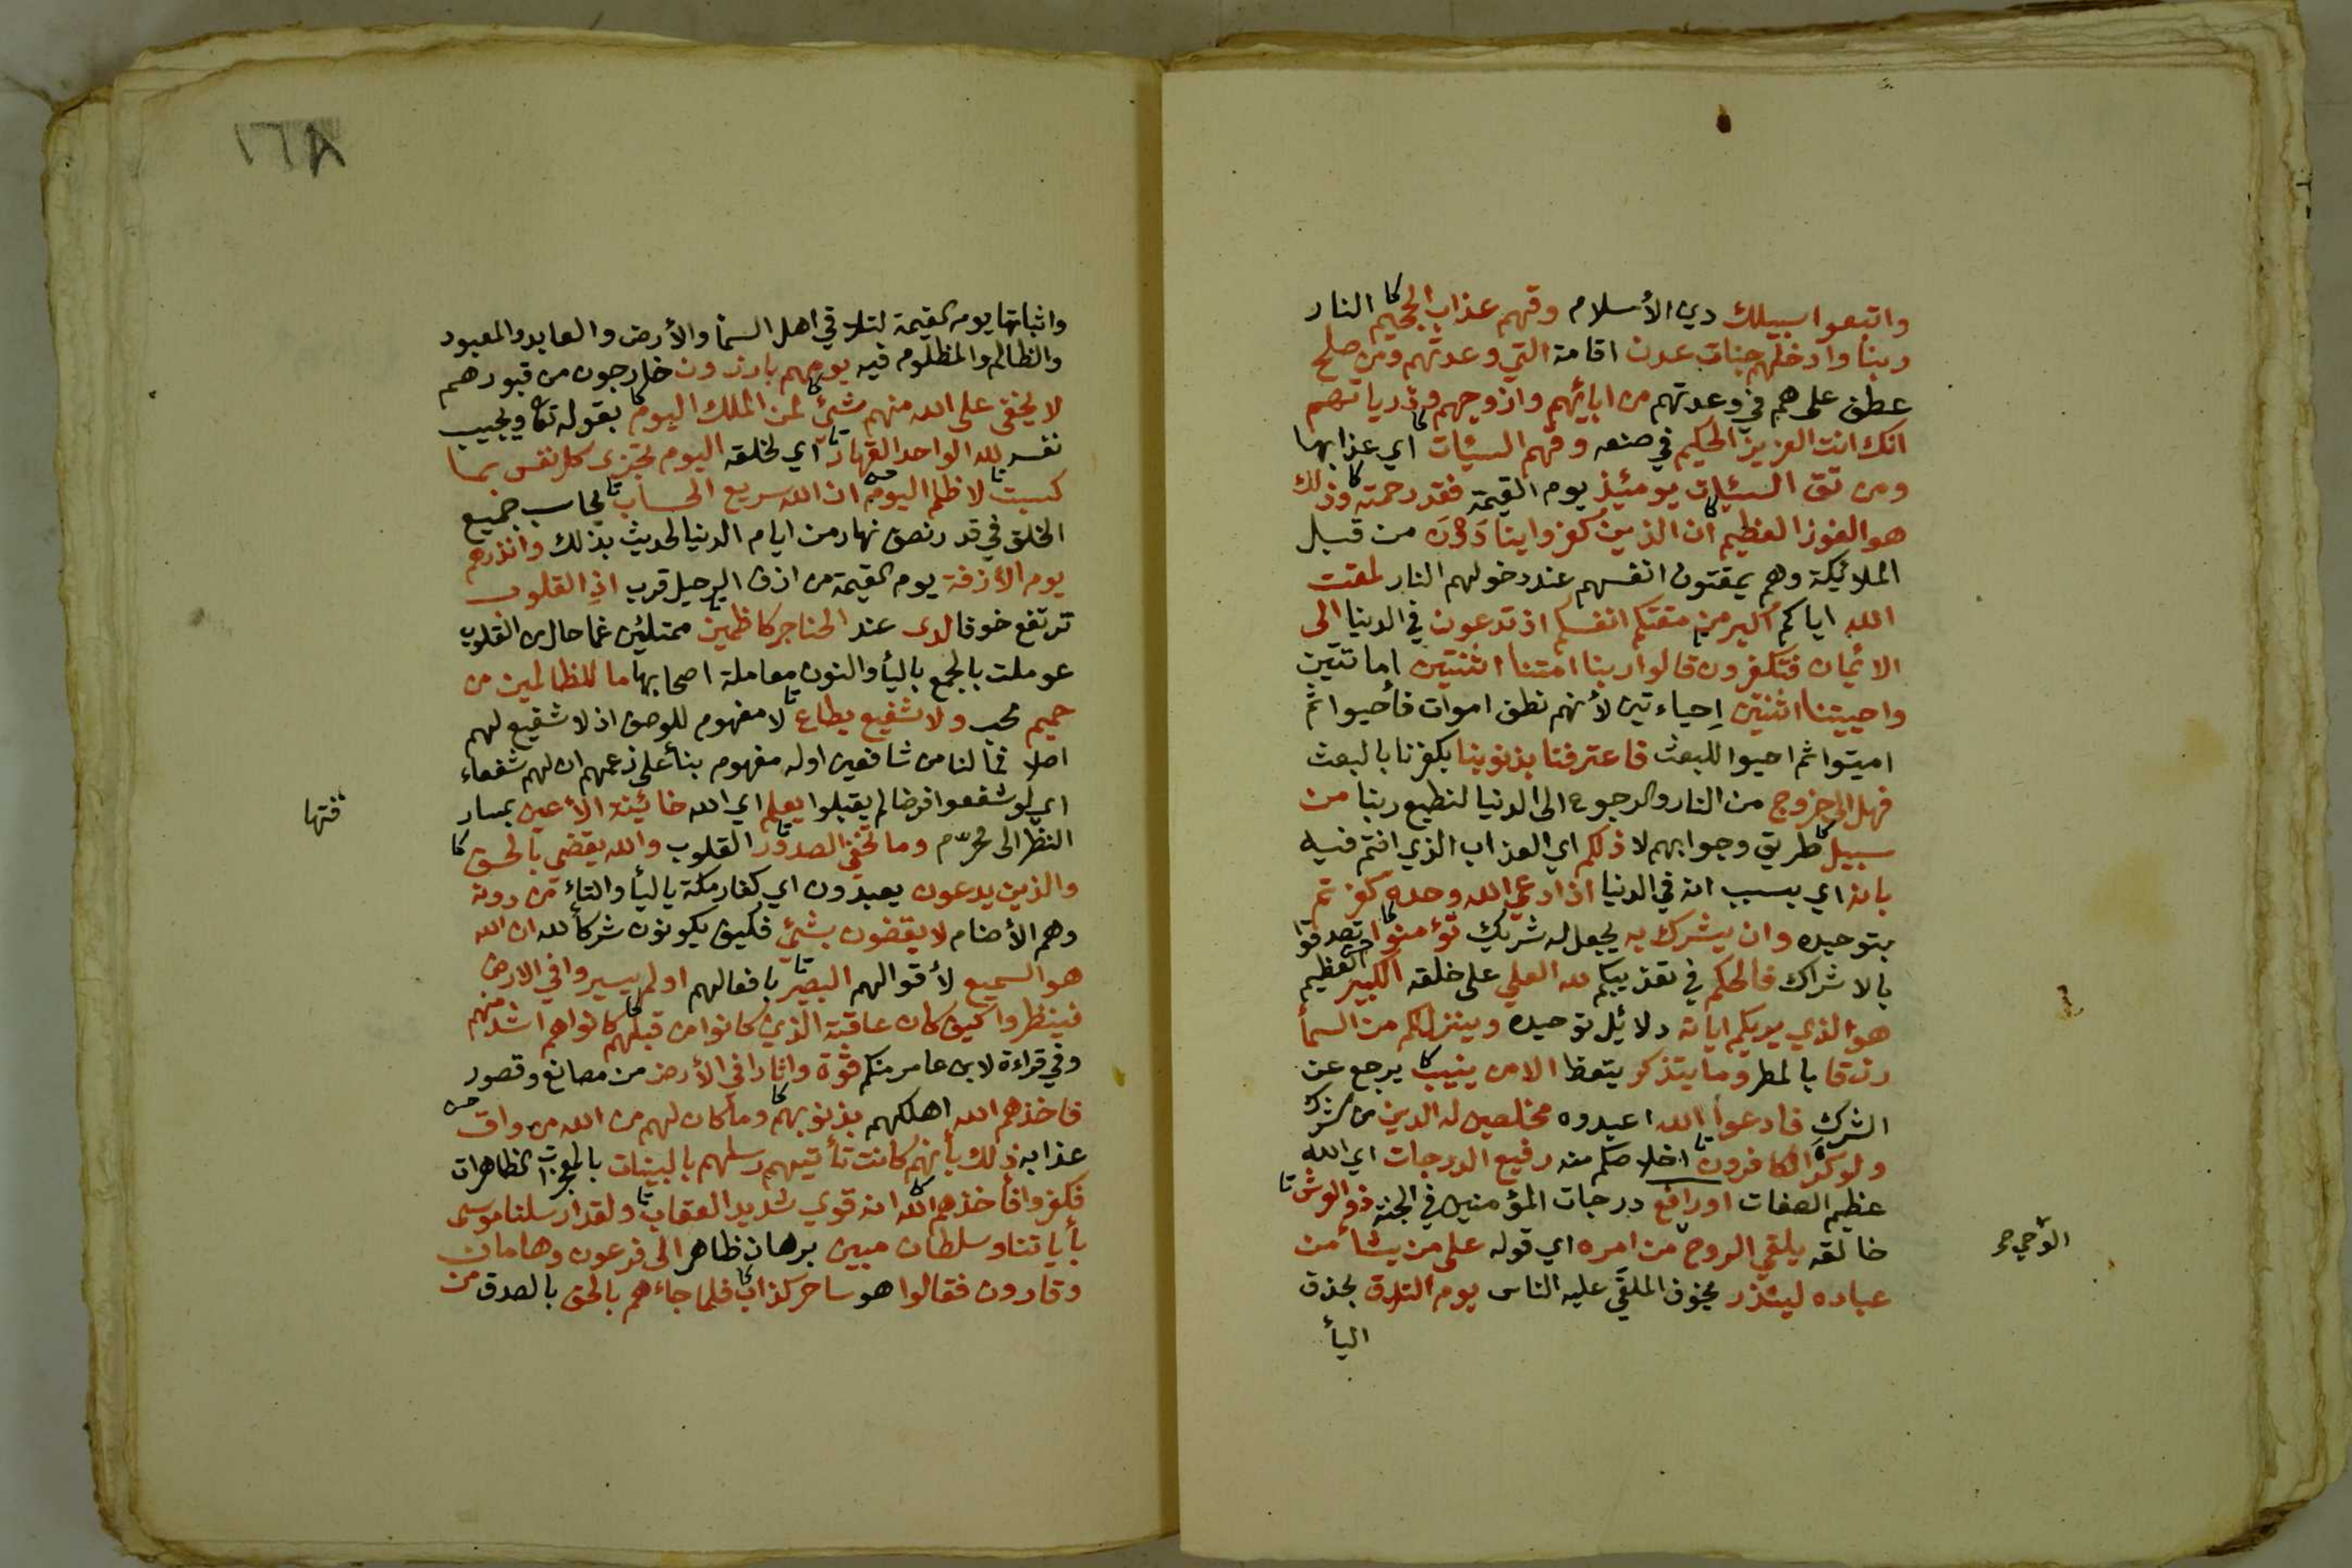 واتبعوا سبيلك دين الأسلام وقهم عذاب الجحيم النار
ربنا وادخلهم جنات عدن اقامة التي وعدتهم ومن صلح
عطف على هم في وعدتهم من ابائهم وازوجهم وذرياتهم
انك انت العزيز الحكيم في صنعه وقهم السيئات اي عذابها
ومن تق السيئات يومئيذ يوم القيمة فقد رحمته وذلك
هو الفوز العظيم ان الذين كفروا ينادون من قبل
الملائيكة وهم يمقتون انفسهم عند دخولهم النار لمقت
الله اياكم اكبر من مقتكم انفسكم اذ تدعون في الدنيا الى
الائيمان فتكفرون قالوا ربنا امتنا اثنتين اماتتين
واحييتنا اثنتين إحياءتين لأنهم نطف اموات فأحيوا ثم
اميتوا ثم احيوا للبعث فاعترفنا بذنوبنا بكفرنا بالبعث
فهل الى خروج من النار والرجوع الى الدنيا لنطيع ربنا من
سبيل طريق وجوابهم لا ذلكم اي العذاب الذي انتم فيه
بانه اي بسبب انه في الدنيا اذا دعي الله وحده كفرتم
بتوحيده وان يشرك به يجعل له شريك تؤمنوا تصدقوا
بالاشراك فالحكم في تعذيبكم لله العلي على خلقه الكبير العظيم
هو الذي يريكم اياته دلائيل توحيده وينزل لكم من السمأ
رزقا بالمطر وما يتذكر يتعظ الا من ينيب يرجع عن
الشرك فادعوا الله اعبدوه مخلصين له الدين من الشرك
ولو كره الكافرون اخلاصكم منه رفيع الدرجات اي الله
عظيم الصفات او رافع درجات المؤمنين في الجنة ذو العرش
خالقه يلقي الروح من امره اي قوله على من يشأ من
الوحي
عباده لينذر يخوف الملقى عليه الناس يوم التلاق بحذف
اليأ
١٦٨
واثباتها يوم القيمة لتلاقي اهل السمأ والأرض والعابد والمعبود
والظالم والمظلوم فيه يوم هم بارزون خارجون من قبورهم
لا يخفى على الله منهم شيئ لمن الملك اليوم بقوله تعا ويجيب
نفسه لله الواحد القهار اي لخلقه اليوم تجزى كل نفس بما
كسبت لا ظلم اليوم ان الله سريع الحساب يحاسب جميع
الخلق في قدر نصف نهار من ايام الدنيا لحديث بذلك وانذرهم
يوم الأزفة يوم القيمة من ازف الرحيل قرب اذ القلوب
ترتفع خوفا لدى عند الحناجر كاظمين ممتلئين غما حال من القلوب
عوملت بالجمع باليأ والنون معاملة اصحابها ما للظالمين من
حميم محب ولا شفيع يطاع لا مفهوم للوصف اذ لا شفيع لهم
اصلا فما لنا من شافعين اوله مفهوم بنأ على زعمهم ان لهم شفعاء
اي لو شفعوا فرضا لم يقبلوا يعلم اي الله خائينة الأعين بمسار
قتها
النظر الى محرّم وما تخفي الصدور القلوب والله يقضي بالحق
والذين يدعون يعبدون اي كفار مكة باليأ والتاء من دونه
وهم الأصنام لا يقضون بشيئ فكيف يكونون شركأ لله ان الله
هو السميع لأقوالهم البصير بافعالهم اولم يسيروا في الارض
فينظروا كيف كان عاقبة الذين كانوا من قبلهم كانوا هم اشد منهم
وفي قراءة لابن عامر منكم قوة واثارا في الأرض من مصانع وقصور
فاخذهم الله اهلكهم بذنوبهم وما كان لهم من الله من واق
عذابه ذلك بأنهم كانت تأتيهم رسلهم بالبينات بالمعجزات الظاهرات
فكفروا فأخذهم الله انه قوي شديد العقاب ولقد ارسلنا موسى
بأياتنا وسلطان مبين برهان ظاهر الى فرعون وهامان
وقارون فقالوا هو ساحر كذاب فلما جاءهم بالحق بالصدق من